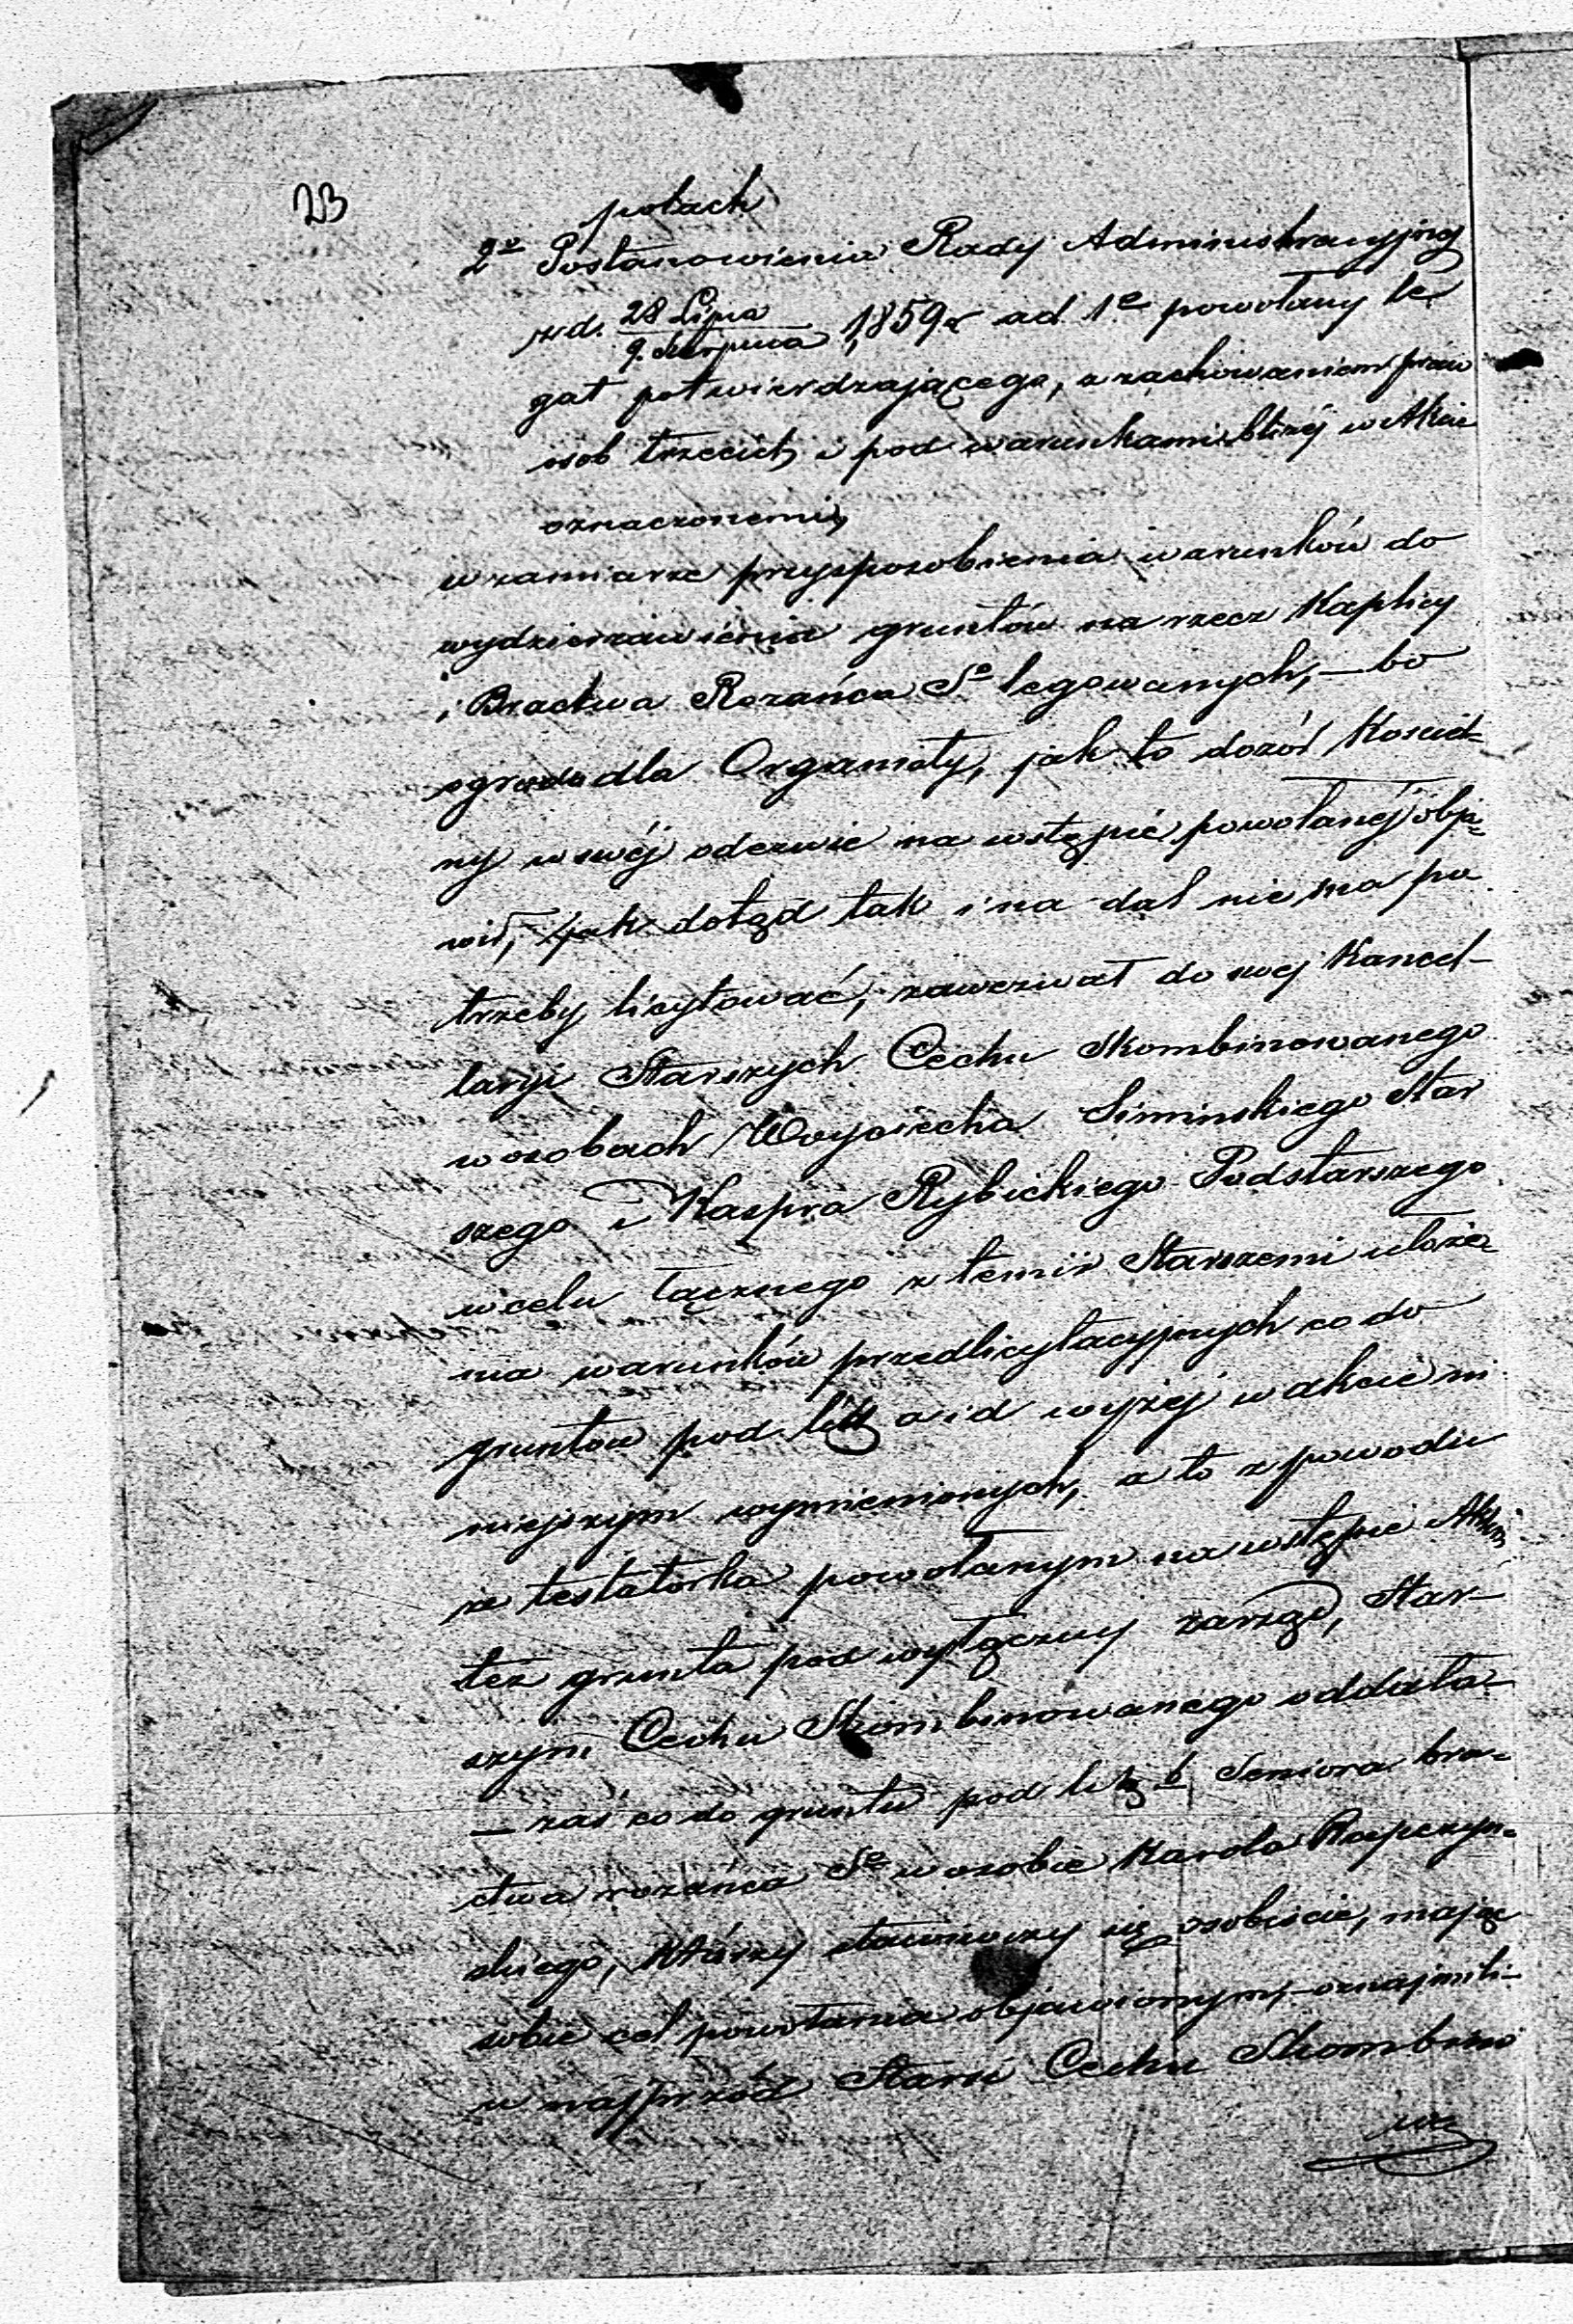 23
polach
2o Postanowienia Rady Administracyjnej
z d. 28 Lipca
9 Sierpnia 1859 r ad 1e powołany le
gat potwierdzającego, z zachowaniem praw
osób trzecich i pod warunkami bliżej w Akcie
oznaczonemi,
w zamiarze przysposobienia warunków do
wydzierżawienia gruntów na rzecz Kaplicy
i Bractwa Rożańca So legowanych, – bo
ogrodu dla Organisty, jak to dozór Kościel-
ny w swéj odezwie na wstępie powołanéj obja-
wił, jak dotąd tak i na dal nie ma po
trzeby licytować, zawezwał do swej Kancel-
laryi Starszych Cechu Skombinowanego
w osobach Woyciecha Siminskiego Star
szego i Kaspra Rybickiego Podstarszego
w celu łącznego z temiż Starszemi ułoże-
nia warunków przedlicytacyjnych co do
gruntów pod lit a i d wyżej w akcie ni
niejszym wymienionych, a to z powodu
że testatorka powołanym na wstępie Aktem
też grunta pod wyłączny zarząd, Star-
szym Cechu Skombinowanego oddała –
– zaś co do gruntu pod lit b Seniora bra-
ctwa rożańca So w osobie Karola Rapczyn-
skiego, którzy stawiwszy się osobiście, mając
sobie cel powołania objawionym, – oznajmili –
w najprzód Starsi Cechu Skombino
wa